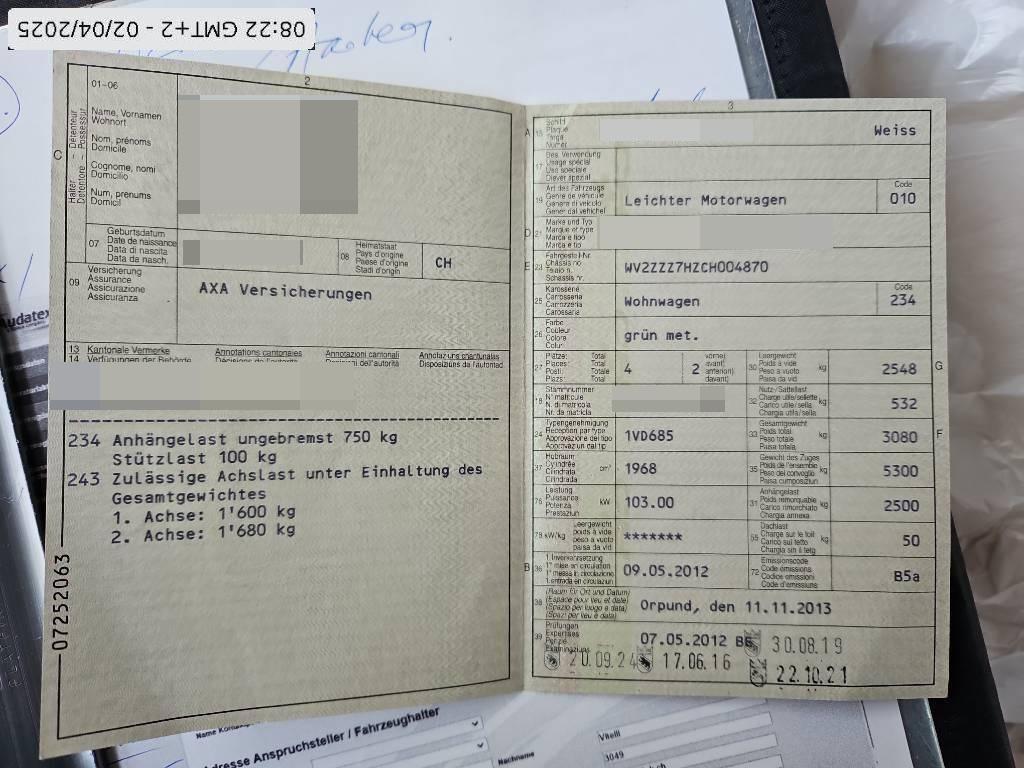 08:22 GMT+2 - 02/04/2025
2
01-06
Halter – Détenteur
Detentore – Possessur
Name, Vornamen
Wohnort
Nom, prénoms
Domicile
Cognome, nomi
Domicilio
Num, prenums
Domicil
C
07
Geburtsdatum
Date de naissance
Data di nascita
Data da nasch.
08
Heimatstaat
Pays d'origine
Paese d'origine
Stadi d'origin
CH
09
Versicherung
Assurance
Assicurazione
Assicuranza
AXA Versicherungen
13 Kantonale Vermerke
Annotations cantonales
Annotazioni cantonali
Annotaziuns chantunalas
14 Verfügungen der Behörde
Décisions de l'autorité
Decisioni dell'autorità
Disposiziuns da l'autoritad
234 Anhängelast ungebremst 750 kg
Stützlast 100 kg
243 Zulässige Achslast unter Einhaltung des
Gesamtgewichtes
1. Achse: 1'600 kg
2. Achse: 1'680 kg
07252063
3
A
15
Schild
Plaque
Targa
Numer
Weiss
17
Bes. Verwendung
Usage spécial
Uso speciale
Diever spezial
19
Art des Fahrzeugs
Genre de véhicule
Genere di veicolo
Gener dal vehichel
Leichter Motorwagen
Code
010
D
21
Marke und Typ
Marque et type
Marca e tipo
Marca e tip
E
23
Fahrgestell-Nr.
Châssis no
Telaio n.
Schassis nr.
WV2ZZZ7HZCH004870
25
Karosserie
Carrosserie
Carrozzeria
Carossaria
Wohnwagen
Code
234
26
Farbe
Couleur
Colore
Colur
grün met.
27
Plätze: Total
Places: Total
Posti: Totale
Plazs: Total
4
2
vorne)
avant)
anteriori)
davant)
30
Leergewicht
Poids à vide
Peso a vuoto
Paisa da vid
kg
2548
G
18
Stammnummer
N° matricule
N. di matricola
Nr. da matricla
32
Nutz-/Sattellast
Charge utile/sellette
Carico utile/sella
Chargia utila/sella
kg
532
24
Typengenehmigung
Réception par type
Approvazione del tipo
Approvaziun dal tip
1VD685
33
Gesamtgewicht
Poids total
Peso totale
Paisa totala
kg
3080
F
37
Hubraum
Cylindrée
Cilindrata
Cilindrada
cm³
1968
35
Gewicht des Zuges
Poids de l'ensemble
Peso del convoglio
Paisa cumposiziun
kg
5300
76
Leistung
Puissance
Potenza
Prestaziun
kW
103.00
31
Anhängelast
Poids remorquable
Carico rimorchiato
Chargia annexa
kg
2500
78 kW/kg
Leergewicht
poids à vide
peso a vuoto
paisa da vid
*******
55
Dachlast
Charge sur le toit
Carico sul tetto
Chargia sin il tetg
kg
50
B
36
1. Inverkehrsetzung
1re mise en circulation
1a messa in circolazione
1. entrada en circulaziun
09.05.2012
72
Emissionscode
Code émissions
Codice emissioni
Code d'emissiuns
B5a
38
(Raum für Ort und Datum)
(Espace pour lieu et date)
(Spazio per luogo e data)
(Spazi per lieu e data)
Orpund, den 11.11.2013
39
Prüfungen
Expertises
Perizie
Examinaziuns
07.05.2012 BE
30.08.19
20.09.24
17.06.16
22.10.21
Audatex
Adresse Anspruchsteller / Fahrzeughalter
Nachname
Vitelli
3049